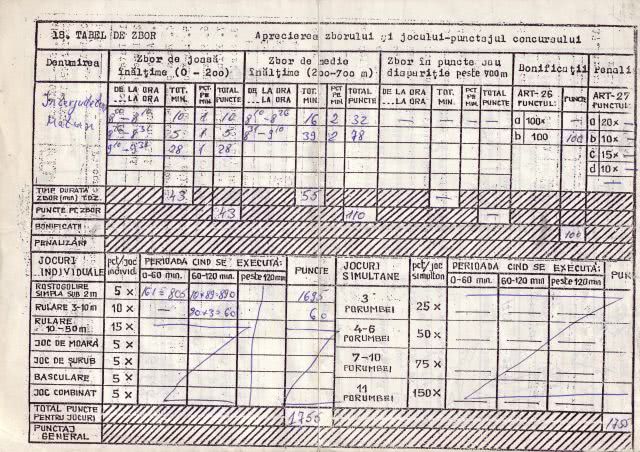 18. TABEL DE ZBOR Aprecierea zborului și jocului-punctajul concursului
Denumirea Zbor de joasă înălțime (0 - 200) Zbor de medie înălțime (200-700 m) Zbor în puncte sau dispariție peste 700m Bonificații Penali
DE LA ORA ...LA ORA TOT. MIN. PCT PE MIN TOT. PUNCTE DE LA ORA ...LA ORA TOT. MIN. PCT PE MIN TOT. PUNCTE DE LA ORA ...LA ORA TOT. MIN. PCT PE MIN TOT. PUNCTE ART-26 PUNCTUL: PUNCTE ART-27 PUNCTUL:
8⁰⁰ - 8¹⁰ 10 1 10 8¹⁰ - 8²⁶ 16 2 32 — — — — a 100× — a 20× —
5 1 5 8³¹ - 9¹⁰ 39 2 78 b 100 100 b 10× —
9¹⁰ - 9³⁸ 28 1 28 c 15× —
d 10× —
TIMP DURATA ZBOR (min) TOZ. 43 55 —
PUNCTE PT. ZBOR 43 110 —
BONIFICAȚII 100
PENALIZĂRI
JOCURI INDIVIDUALE pct/joc individ. PERIOADA CIND SE EXECUTĂ: PUNCTE JOCURI SIMULTANE pct/joc simultan PERIOADA CIND SE EXECUTĂ: PUN
0-60 min. 60-120 min. peste 120min 0-60 min. 60-120 min. peste 120min
ROSTOGOLIRE SIMPLA SUB 2m 5 × 161 = 805 10×89=890 1695 3 PORUMBEI 25×
RULARE 3-10m 10 × — 20×3=60 60
RULARE 10-50m 15 × 4-6 PORUMBEI 50×
JOC DE MOARĂ 5 ×
JOC DE ȘURUB 5 × 7-10 PORUMBEI 75×
BASCULARE 5 ×
JOC COMBINAT 5 × 11 PORUMBEI 150×
TOTAL PUNCTE PENTRU JOCURI 1755 1755
PUNCTAJ GENERAL